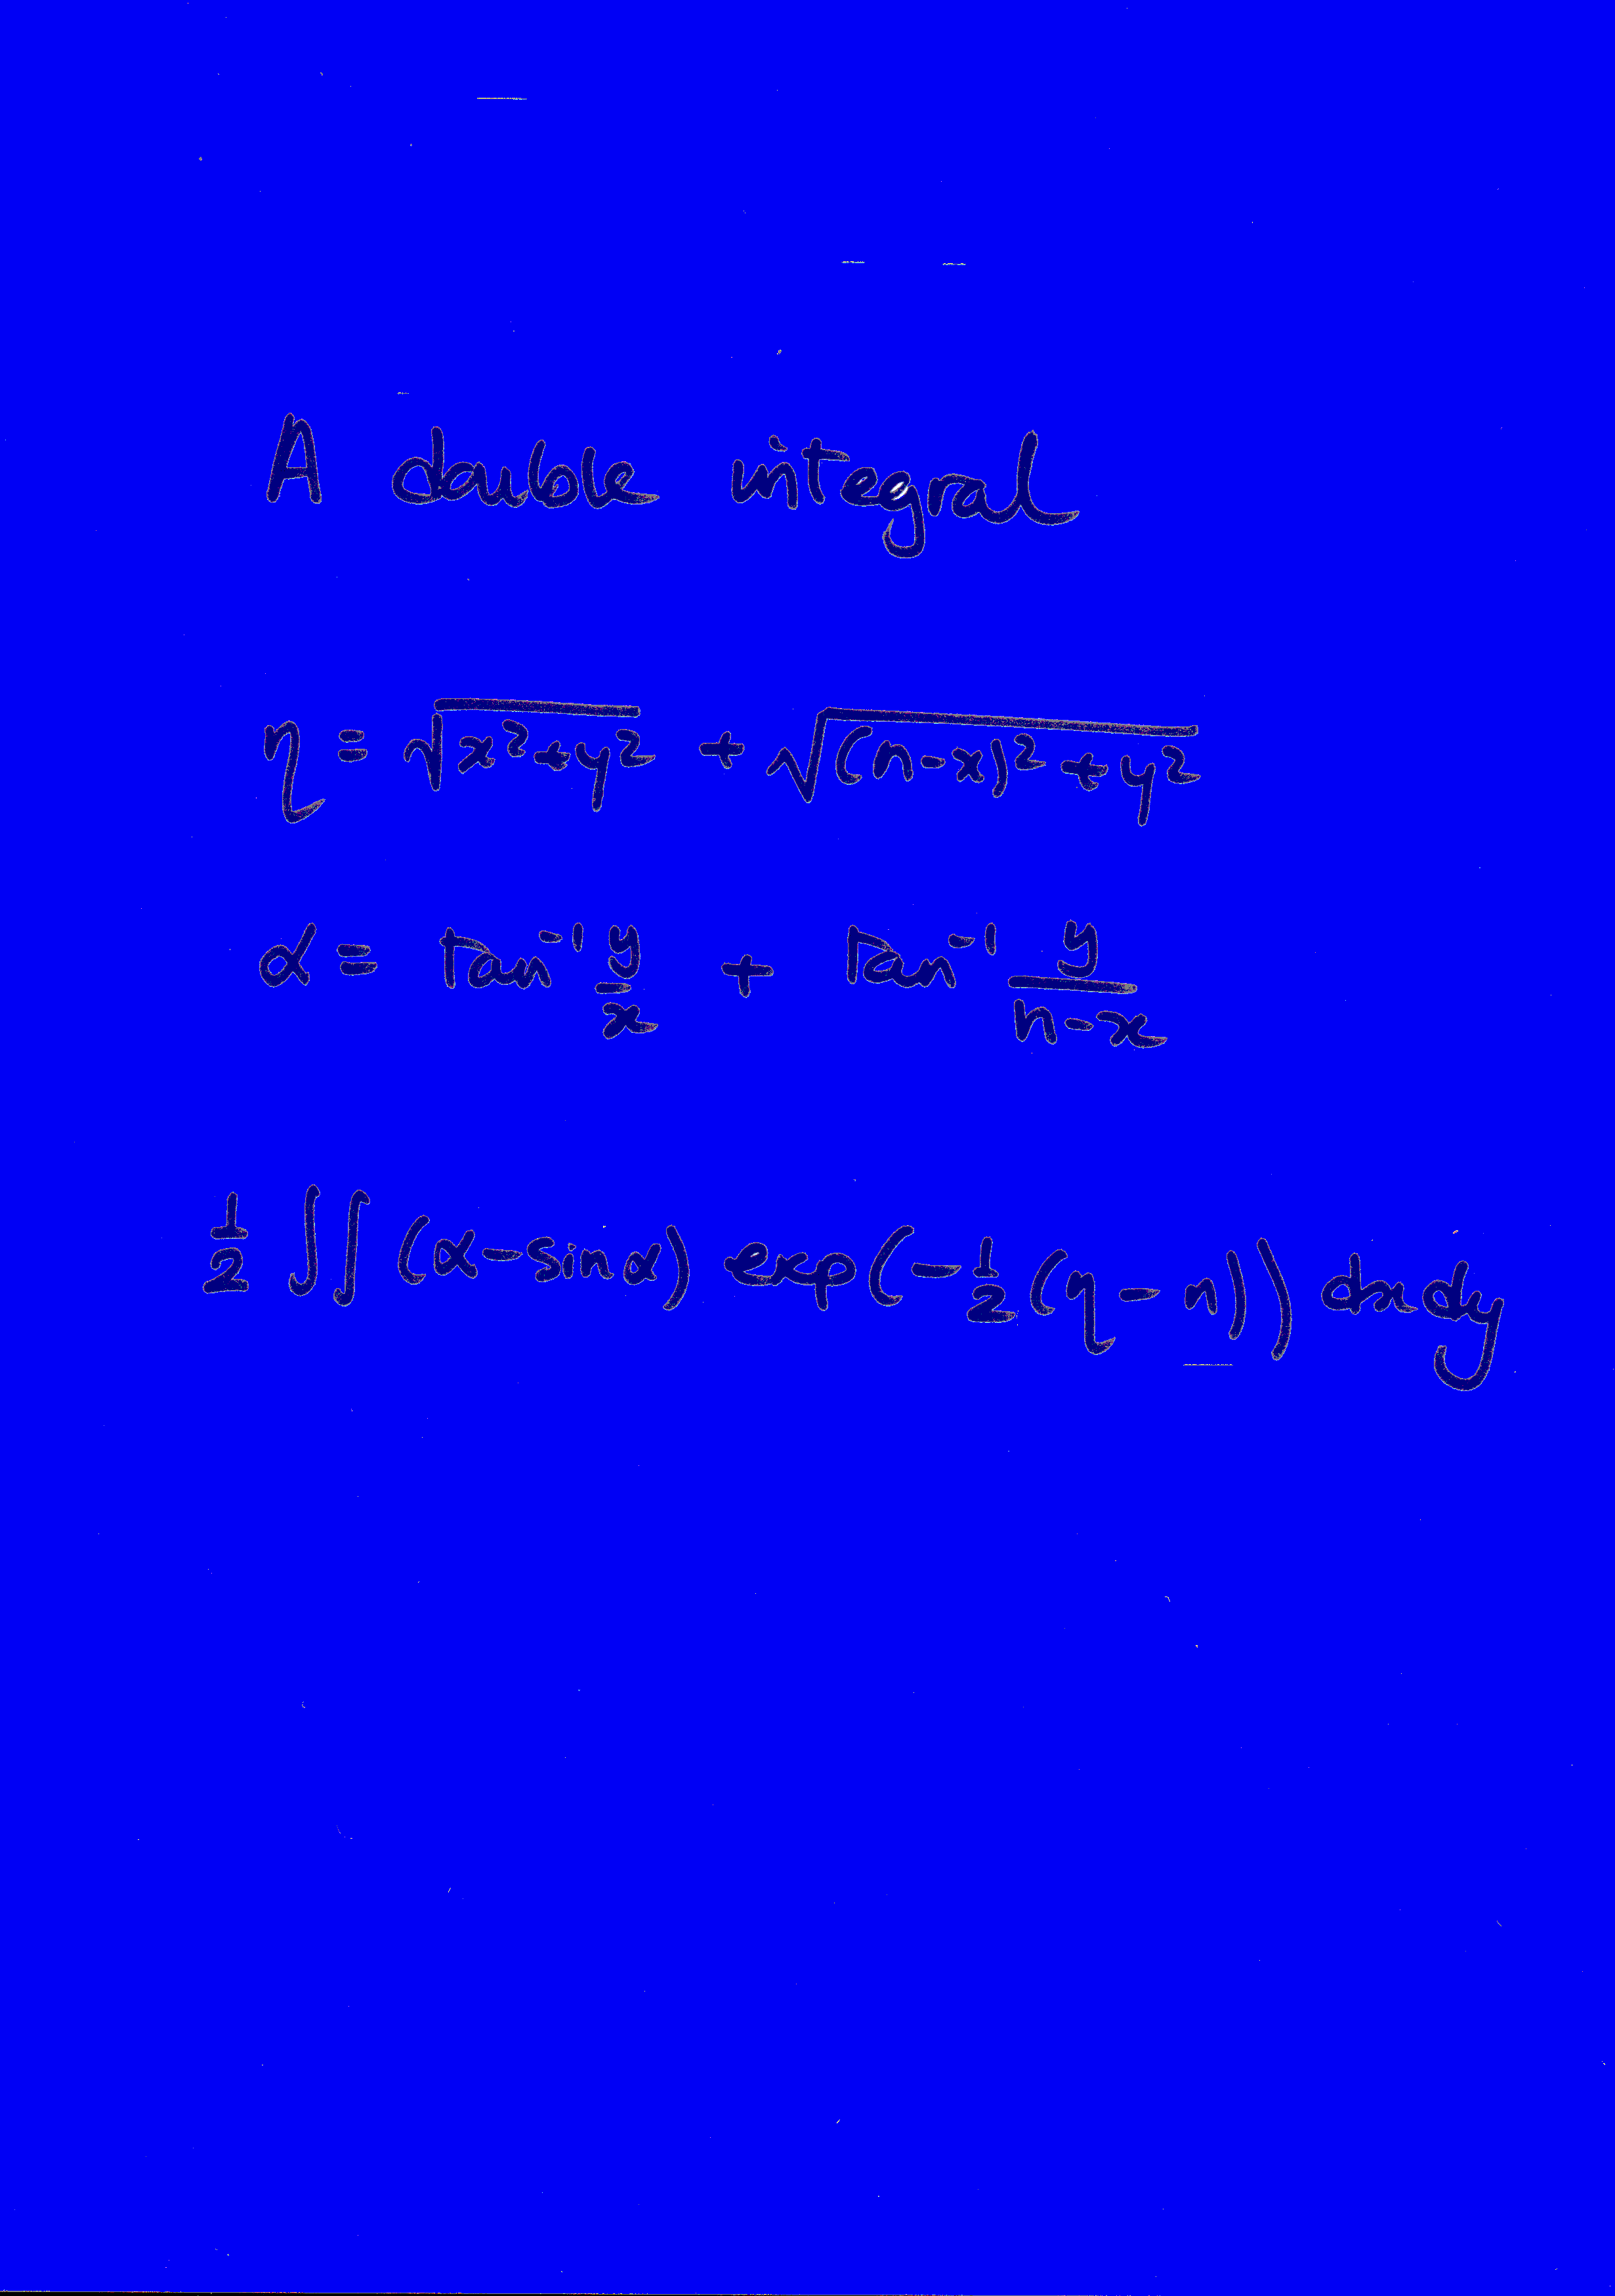 A double integral
η = √(x²+y²) + √((n-x)²+y²)
α = tan⁻¹ y/x + tan⁻¹ y/(n-x)
½ ∫∫ (α-sinα) exp(-½(η-n)) dxdy